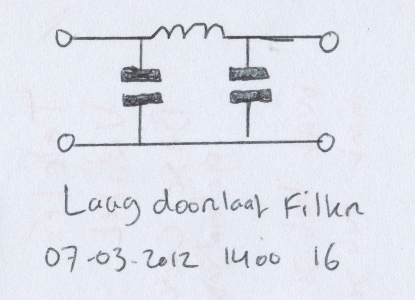 Laag doorlaat Filter
07-03-2012 1400 16